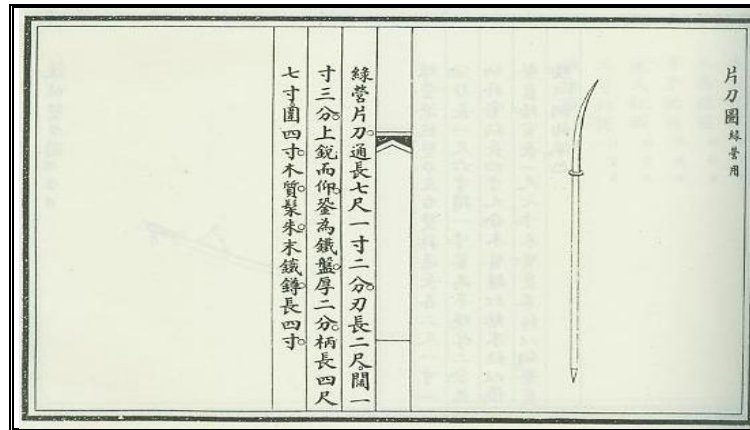 片刀圖 綠營用
綠營片刀。通長七尺一寸二分。刃長二尺。闊一
寸三分。上銳而仰。銎為鐵盤。厚二分。柄長四尺
七寸。圍四寸。木質。髹朱。末鐵鐏。長四寸。